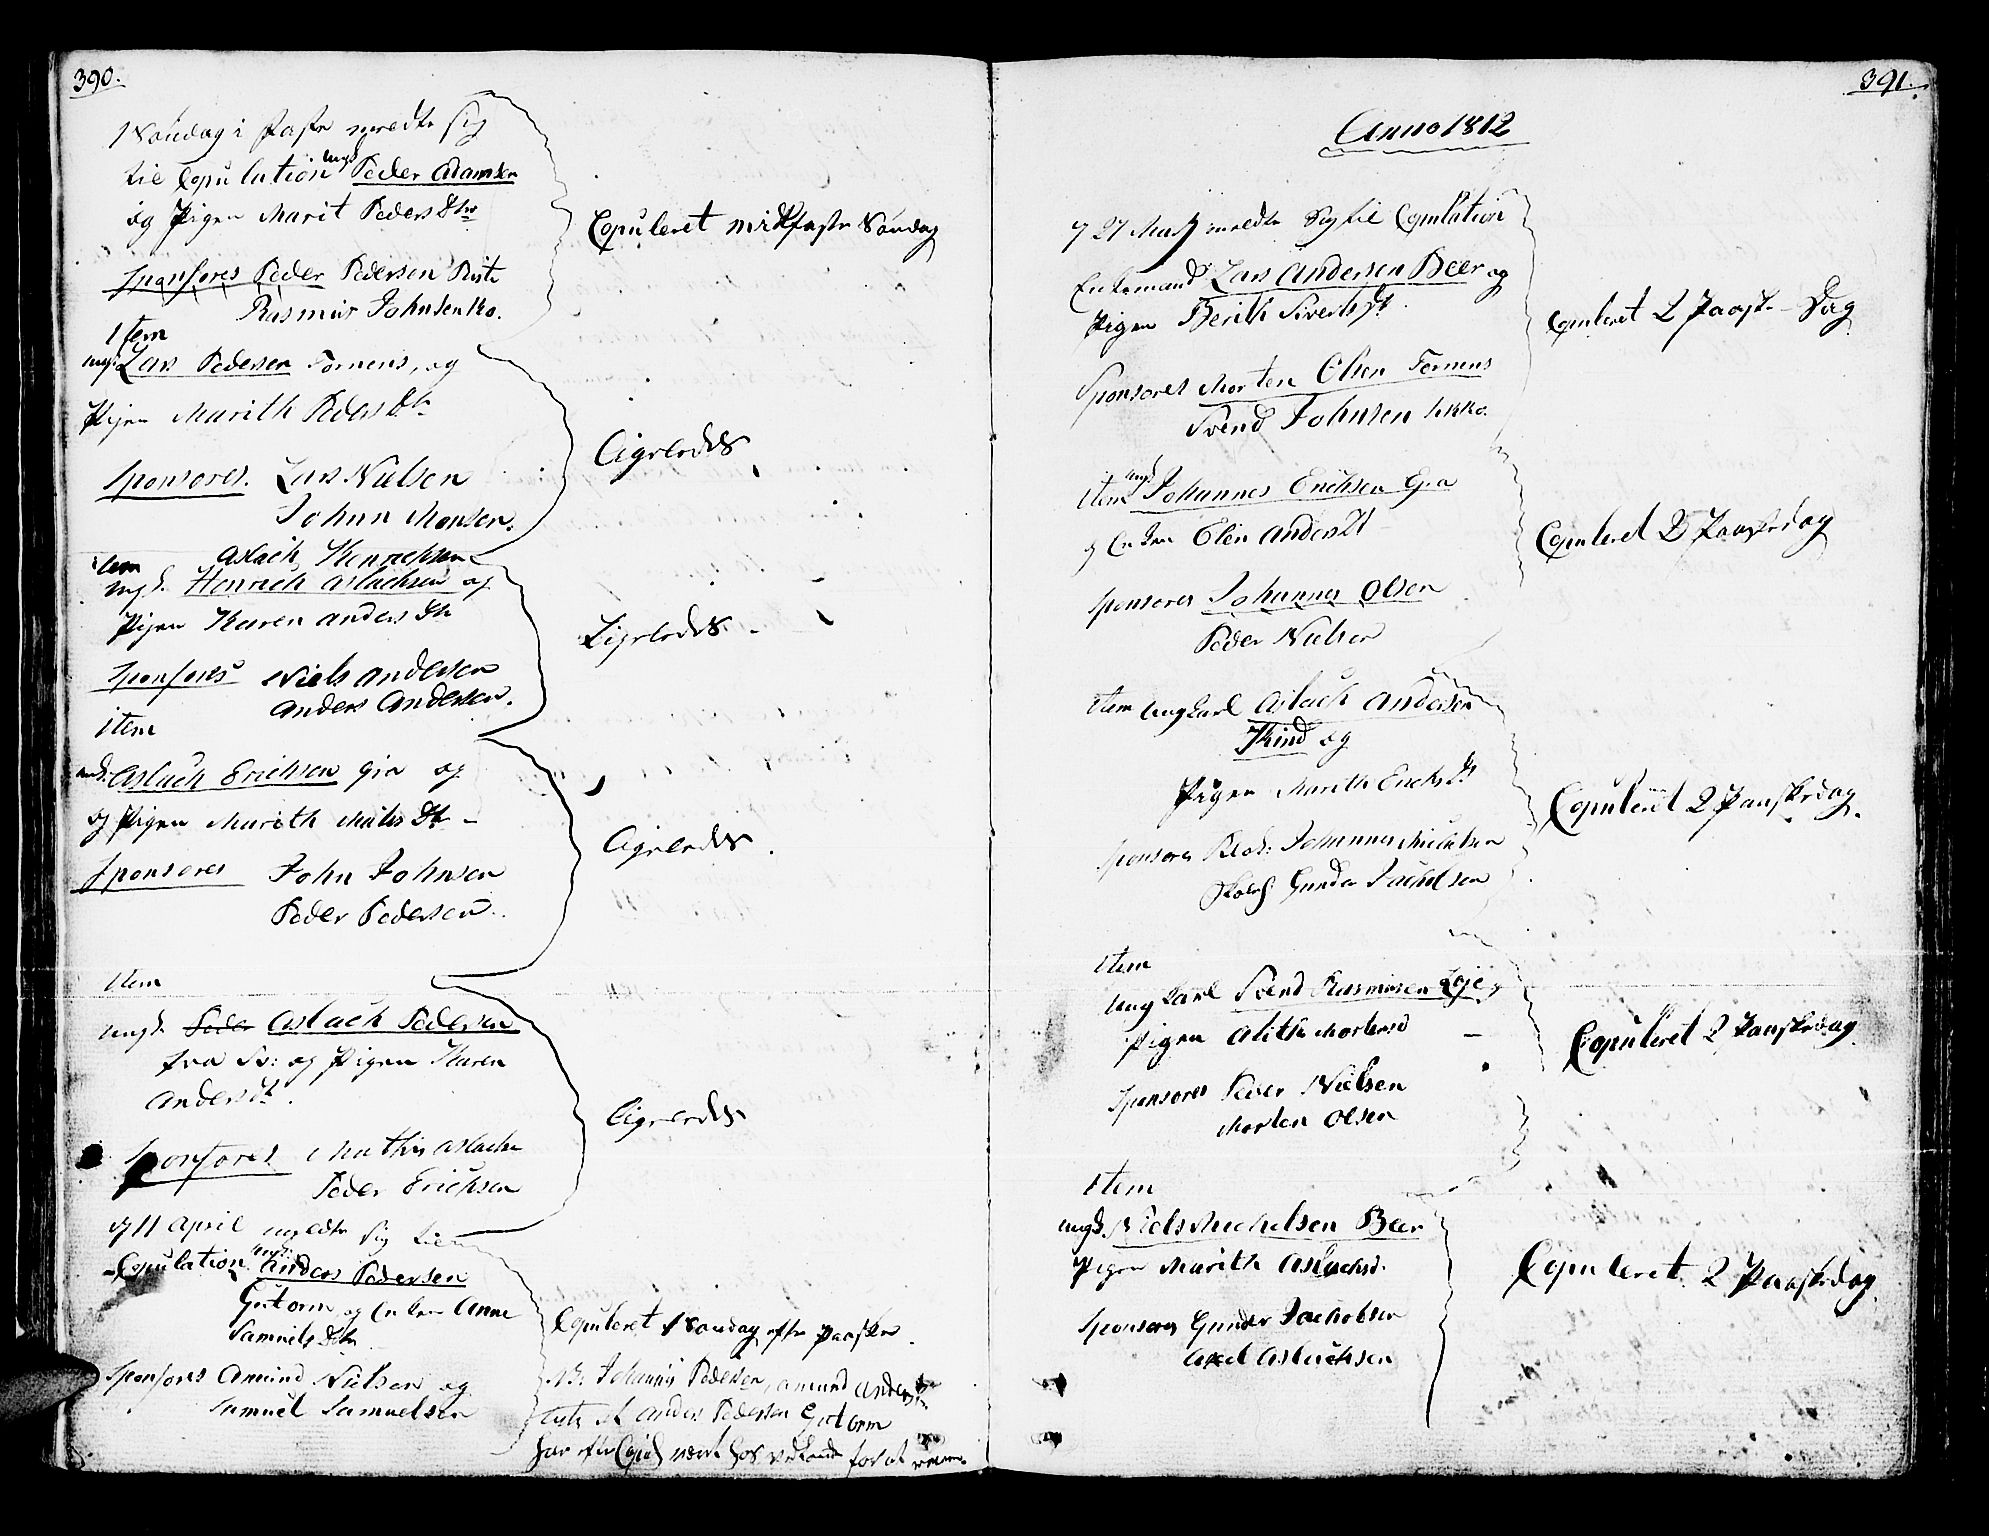 390.
1 Söndag i Faste meldte sig
til Copulation ungk. Peder Adamsen
og Pigen Marit Peders Dtr
Sponsores Peder Pedersen
Rasmus Johnsen
Copuleret midfaste Söndag
Item
ungk. Lars Pedersen Tornens, og
Pigen Marith Peders Dtr
Sponsores. Lars Nielsen
John Monsen.
Ligeledes
Item Aslach Henrichsen
ungk. Henrich Aslachsen og
Pigen Karen Anders Dtr
Sponsores Niels Andersen
Anders Andersen.
Ligeledes.
Item
ungk. Aslach Erichsen og
og Pigen Marith Mathis Dtr
Sponsores John Johnsen
Peder Pedersen.
Ligeledes.
Item
ungk. Peder Aslach Pedersen
fra og Pigen Karen
Anders Dt.
Sponsores Mathis Aslachs
Peder Erichsen
Ligeledes
d 11 April meldte sig til
Copulation ungk. Anders Pedersen
Gutorm og Enken Anne
Samuels Dtr
Sponsores Amund Nielsen og
Samuel Samuelsen
Copuleret 1 Söndag efter Paaske.
NB. Johannes Pedersen, Amund Anders
at Anders Pedersen Gutorm
har for at
391.
Anno 1812
d 27 Marts meldte Sig til Copulation
Enkemand Lars Andersen Beer og
Pigen Berith Siverts Dt.
Sponsores Morten Olsen Tornens
Svend Johnsen
Copuleret 2 Paaske-Dag
Item ungk. Johannes Erichsen
og Enken Elen Anders Dt
Sponsores Johannes Olsen
Peder Nielsen
Copuleret 2 Paaskedag
Item Ungkarl Aslach Andersen
Kind og
Pigen Marith Erichs Dt
Sponsores Johannes Michelsen
Gunder Jachelsen
Copuleret 2 Paaskedag.
Item
Ungkarl Svend Rasmusen Leje og
Pigen Alith Mortensd
Sponsores Peder Nielsen
Morten Olsen
Copuleret 2 Paaskedag.
Item
ungk. Niels Michelsen Beer
Pigen Marith Aslachsd.
Sponsores Gunder Jachobsen
Axel Aslachsen
Copuleret 2 Paaskedag